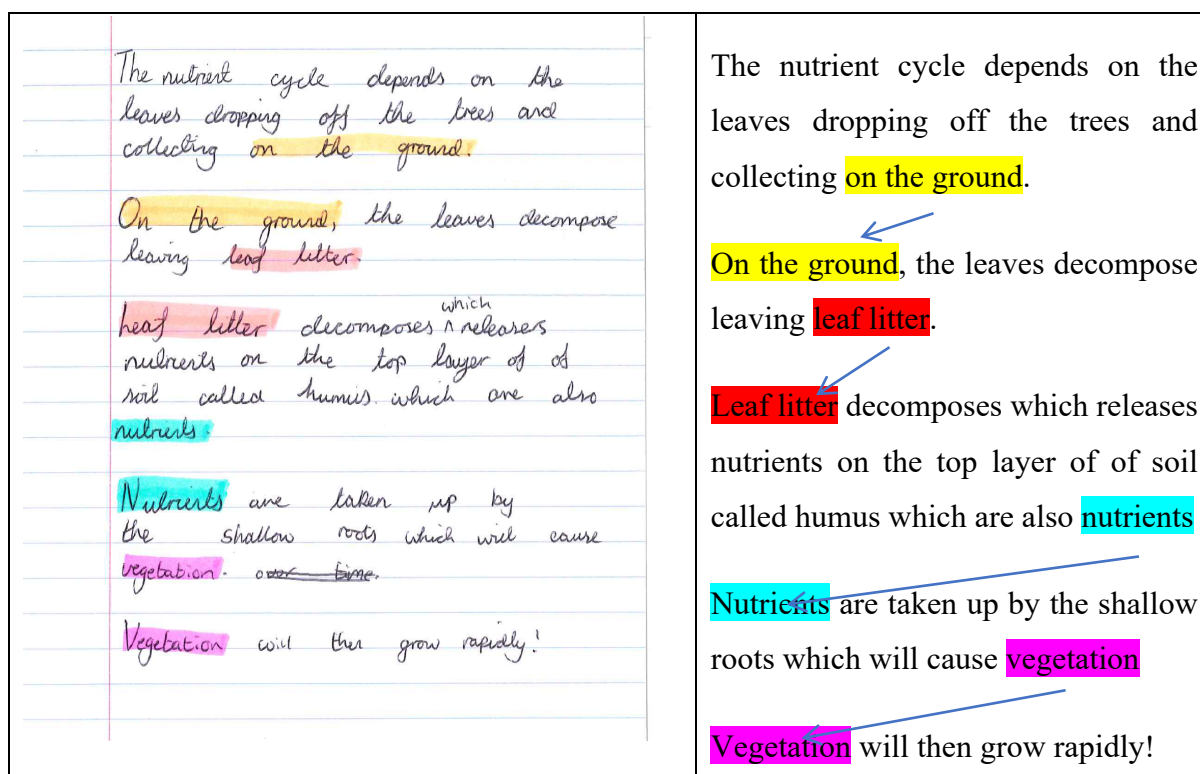 The nutrient cycle depends on the
leaves dropping off the trees and
collecting on the ground.
On the ground, the leaves decompose
leaving leaf litter.
which
Leaf litter decomposes ^ releasers
nutrients on the top layer of of
soil called humus which are also
nutrients.
Nutrients are taken up by
the shallow roots which will cause
vegetation. over time.
Vegetation will then grow rapidly!
The nutrient cycle depends on the
leaves dropping off the trees and
collecting on the ground.
On the ground, the leaves decompose
leaving leaf litter.
Leaf litter decomposes which releases
nutrients on the top layer of of soil
called humus which are also nutrients
Nutrients are taken up by the shallow
roots which will cause vegetation
Vegetation will then grow rapidly!